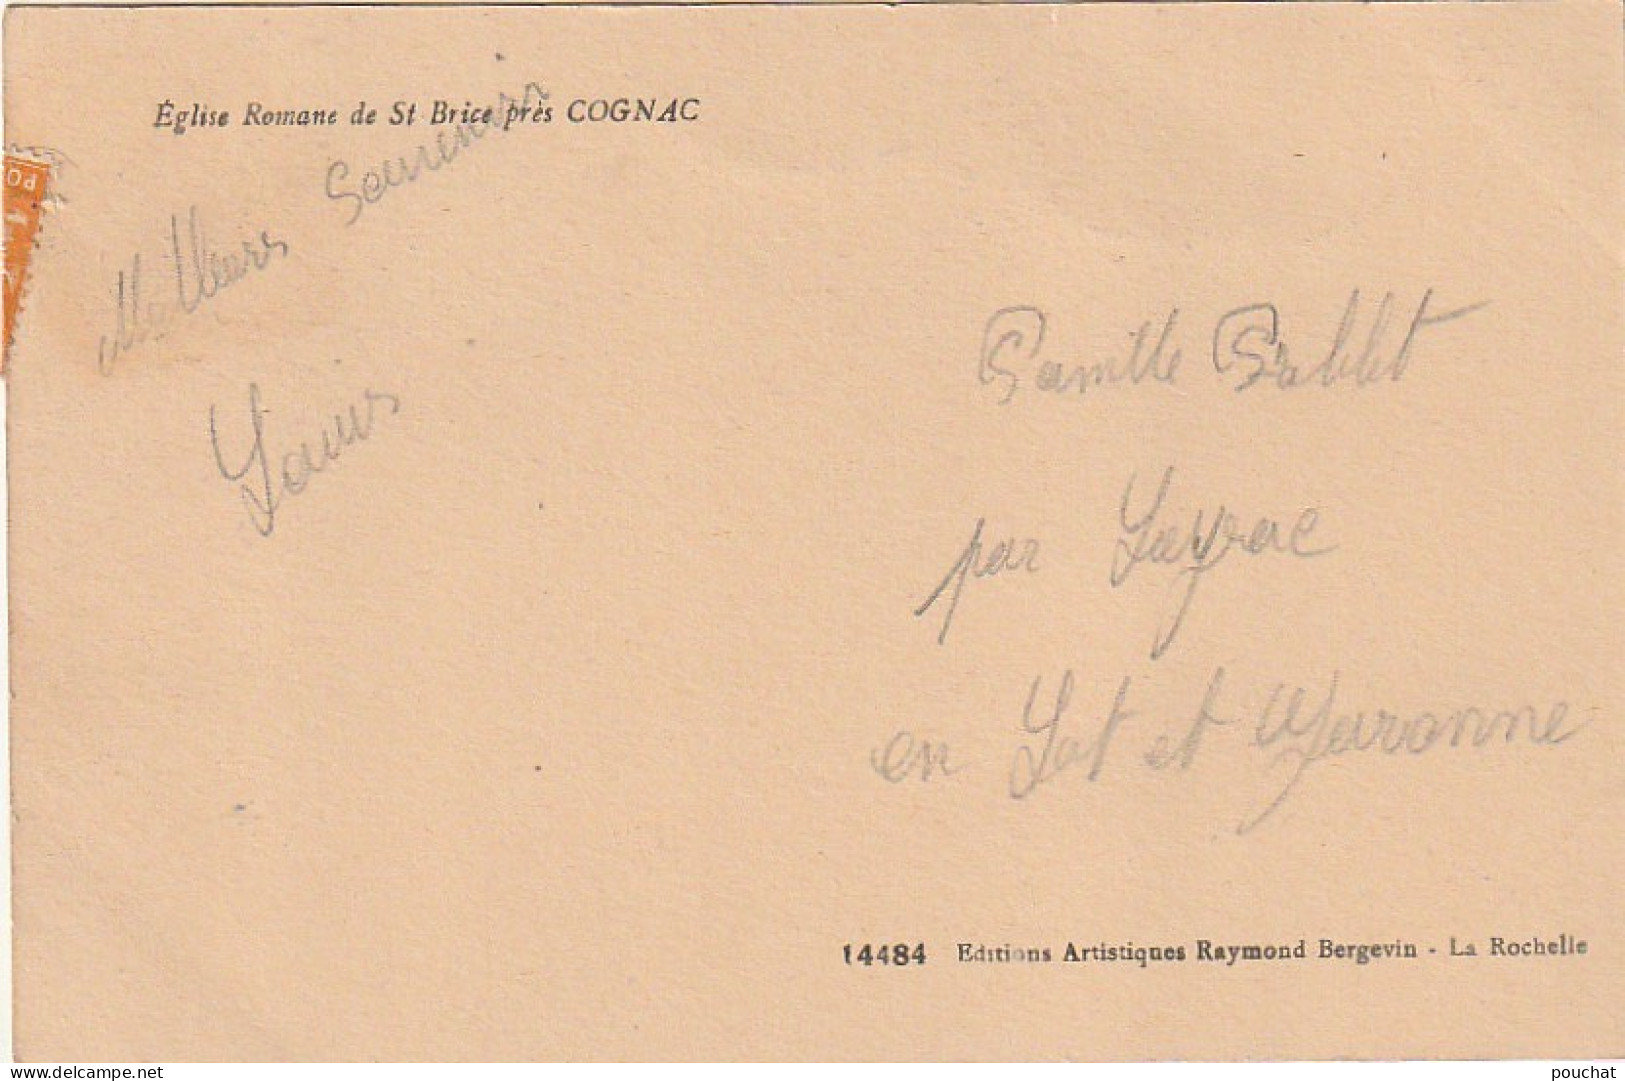 Église Romane de St Brice près COGNAC
PO
Meilleurs Souvenirs
Louis
par Layrac
en Lot et Garonne
14484 Editions Artistiques Raymond Bergevin - La Rochelle
delcampe.net
pouchat